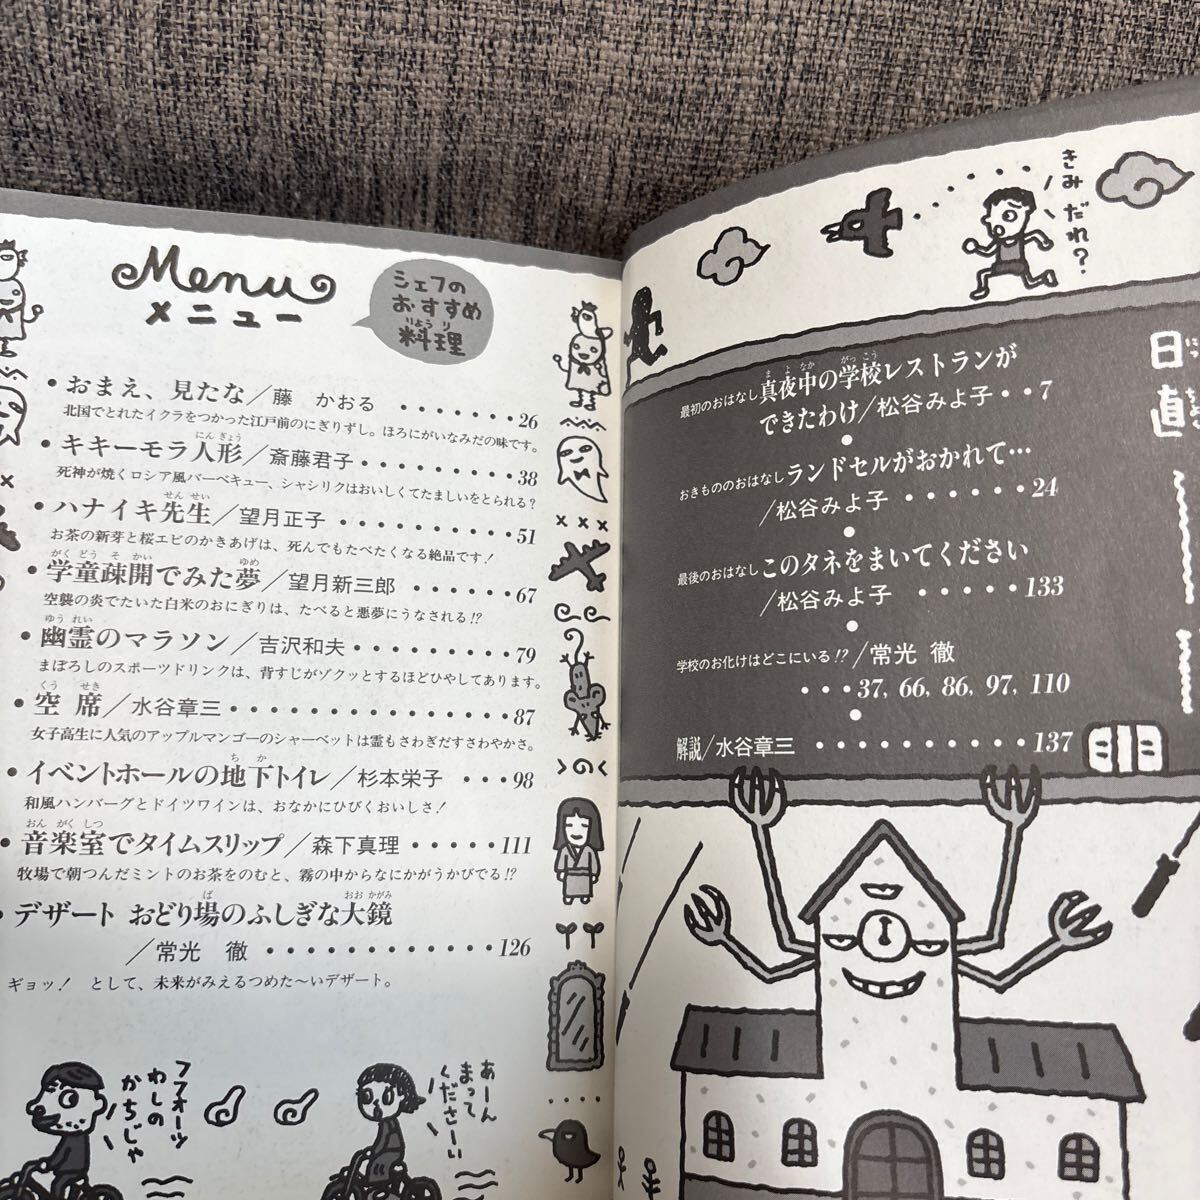 Menu
メニュー
シェフの
おすすめ
りょうり
料理
・おまえ、見たな／藤 かおる・・・・・・・26
北国でとれたイクラをつかった江戸前のにぎりずし。ほろにがいなみだの味です。
にんぎょう
・キキーモラ人形／斎藤君子・・・・・・・・・38
死神が焼くロシア風バーベキュー、シャシリクはおいしくてたましいをとられる？
せんせい
・ハナイキ先生／望月正子・・・・・・・・・・51
お茶の新芽と桜エビのかきあげは、死んでもたべたくなる絶品です！
がくどうそかい ゆめ
・学童疎開でみた夢／望月新三郎・・・・・・67
空襲の炎でたいた白米のおにぎりは、たべると悪夢にうなされる!?
ゆうれい
・幽霊のマラソン／吉沢和夫・・・・・・・・・79
まぼろしのスポーツドリンクは、背すじがゾクッとするほどひやしてあります。
くうせき
・空席／水谷章三・・・・・・・・・・・・・・・87
女子高生に人気のアップルマンゴーのシャーベットは霊もさわぎだすさわやかさ。
ちか
・イベントホールの地下トイレ／杉本栄子・・・98
和風ハンバーグとドイツワインは、おなかにひびくおいしさ！
おんがくしつ
・音楽室でタイムスリップ／森下真理・・・・・111
牧場で朝つんだミントのお茶をのむと、霧の中からなにかがうかびでる!?
ば おおかがみ
・デザート おどり場のふしぎな大鏡
／常光 徹・・・・・・・・・・・・126
ギョッ！ として、未来がみえるつめた〜いデザート。
フフォーッ
わしの
かちじゃ
あーん
まって
くださーい
きみだれ？
まよなか がっこう
最初のおはなし 真夜中の学校レストランが
できたわけ／松谷みよ子・・7
おきもののおはなし ランドセルがおかれて…
／松谷みよ子・・・・・・24
最後のおはなし このタネをまいてください
／松谷みよ子・・・・・・133
学校のお化けはどこにいる!?／常光 徹
・・・37, 66, 86, 97, 110
解説／水谷章三・・・・・・・・・・137
日
直